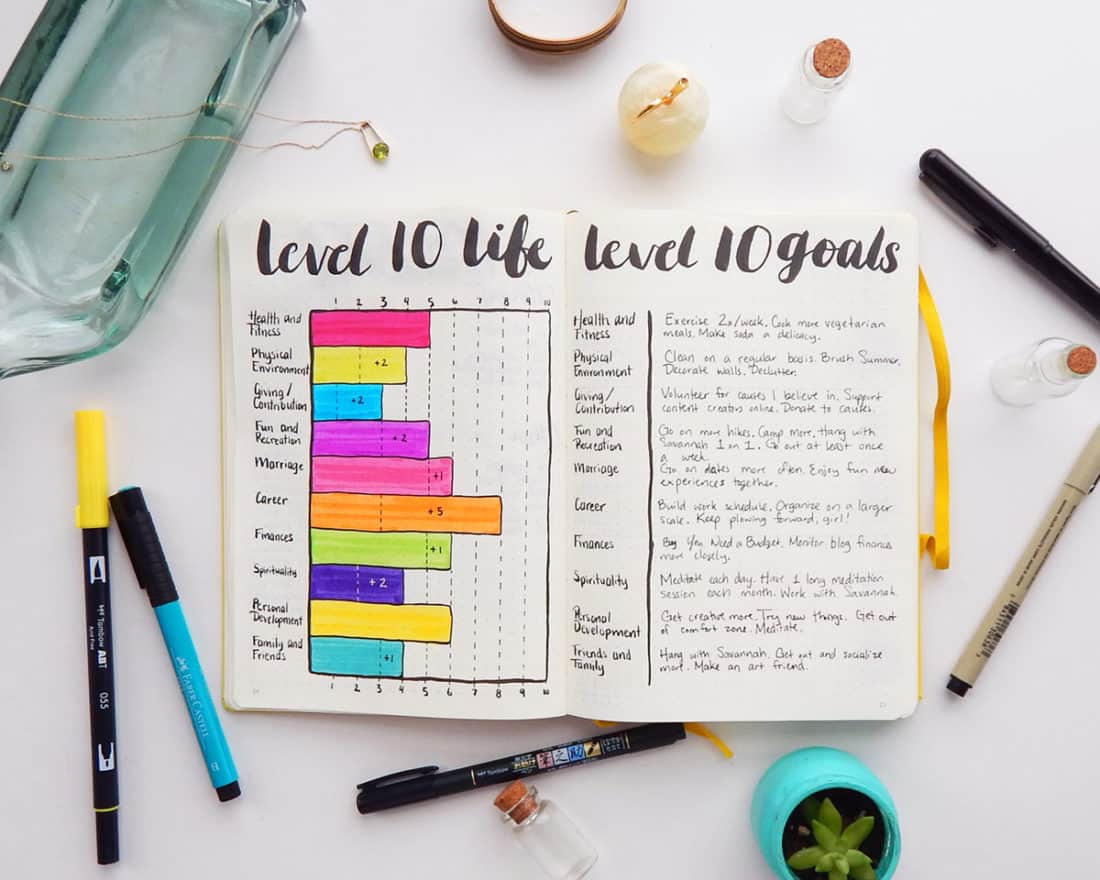 Level 10 Life
1 2 3 4 5 6 7 8 9 10
Health and
Fitness
Physical
Environment
+2
Giving/
Contribution
+2
Fun and
Recreation
+2
Marriage
+1
Career
+5
Finances
+1
Spirituality
+2
Personal
Development
Family and
Friends
+1
1 2 3 4 5 6 7 8 9 10
Level 10 goals
Health and
Fitness
Exercise 2x/week. Cook more vegetarian
meals. Make soda a delicacy.
Physical
Environment
Clean on a regular basis. Brush Summer.
Decorate walls. Declutter.
Giving/
Contribution
Volunteer for causes I believe in. Support
content creators online. Donate to causes.
Fun and
Recreation
Go on more hikes. Camp more. Hang with
Savannah 1 on 1. Go out at least once
a week.
Marriage
Go on dates more often. Enjoy fun new
experiences together.
Career
Build work schedule. Organize on a larger
scale. Keep plowing forward, girl!
Finances
Buy You Need a Budget. Monitor blog finances
more closely.
Spirituality
Meditate each day. Have 1 long meditation
session each month. Work with Savannah.
Personal
Development
Get creative more. Try new things. Get out
of comfort zone. Meditate.
Friends and
Family
Hang with Savannah. Get out and socialize
more. Make an art friend.
Tombow ABT
055
FABER CASTELL
Tombow